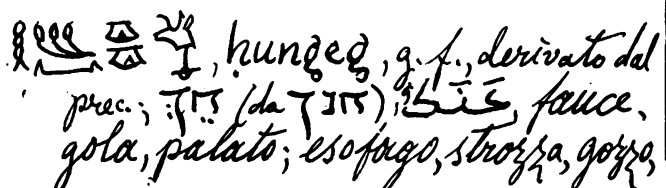 , hungeg, g. f., derivato dal
prec.; חֵךְ (da חנך); حَنَك, fauce,
gola, palato; esofago, strozza, gozzo,